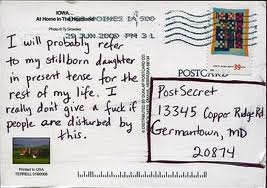 IOWA...
At Home In The Heartland
Photo © Ty Smedes
DES MOINES IA 500
29 JUN 2009 PM 3 L
39 USA
POSTCARD
I will probably refer
to my stillborn daughter
in present tense for the
rest of my life. I
really don't give a fuck if
people are disturbed by
this.
PostSecret
13345 Copper Ridge Rd
Germantown, MD
20874
Printed in USA
TERRELL